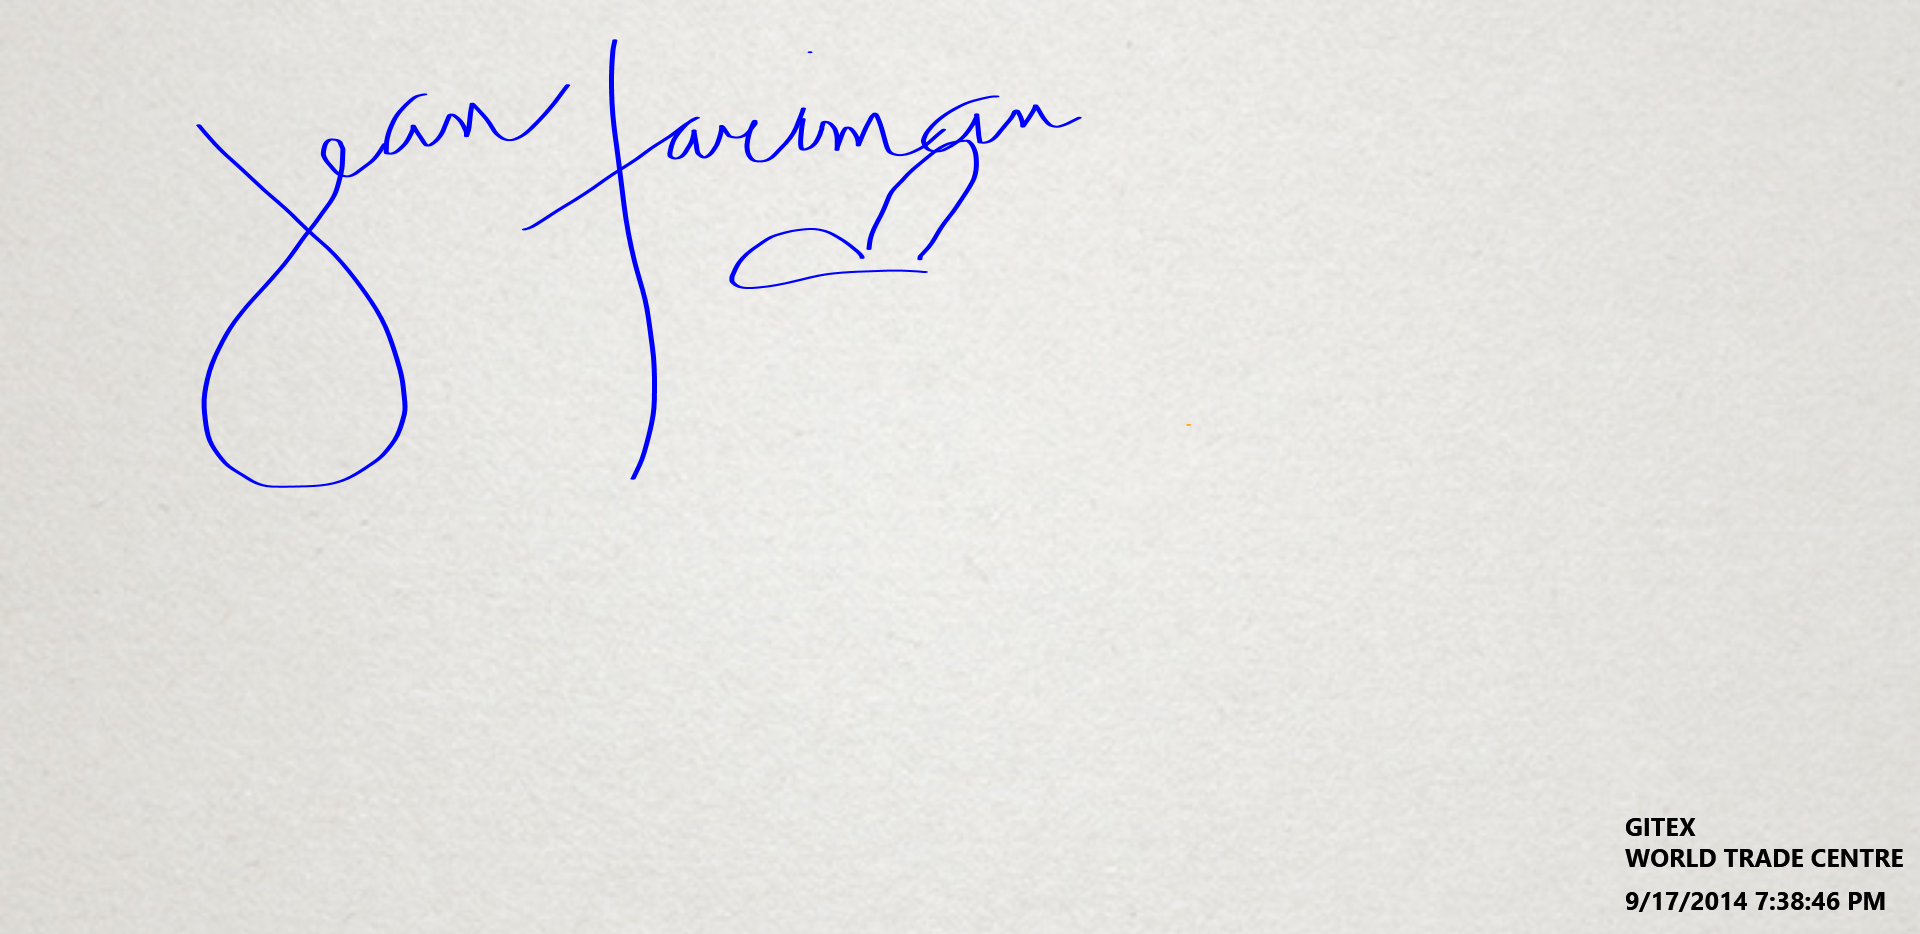 Jean Tariman
GITEX
WORLD TRADE CENTRE
9/17/2014 7:38:46 PM